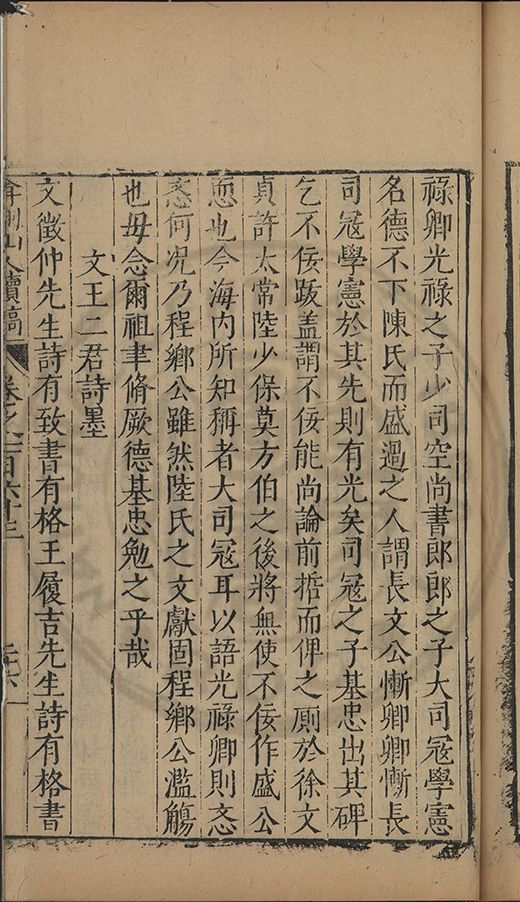 祿卿光祿之子少司空尚書郎郎之子大司冦學憲
名德不下陳氏而盛過之人謂長文公慚卿卿慚長
司冦學憲於其先則有光矣司冦之子基忠出其碑
乞不佞跋盖謂不佞能尚論前悊而俾之厠於徐文
貞許太常陸少保莫方伯之後將無使不佞作盛公
恧也今海内所知稱者大司冦耳以語光祿卿則忞
忞何况乃程鄉公雖然陸氏之文獻固程鄉公濫觴
也毋念爾祖聿脩厥德基忠勉之乎哉
文王二君詩墨
文徵仲先生詩有致書有格王履吉先生詩有格書
弇州山人續稿
卷之一百六十三